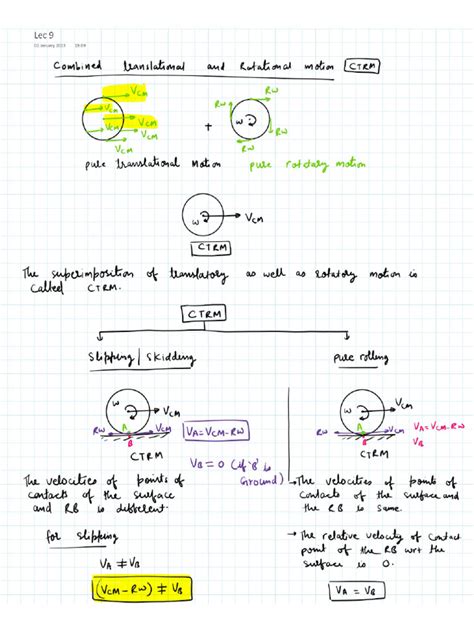 Lec 9
02 January 2023 19:59
Combined translational and Rotational motion CTRM
VCM
VCM
VCM
VCM
VCM
VCM
+
Rω
Rω
ω
Rω
Rω
pure translational motion pure rotatory motion
ω VCM
CTRM
The superimposition of translatory as well as rotatory motion is
called CTRM.
CTRM
Slipping / skidding pure rolling
ω VCM
Rω A VCM
B
CTRM
VA = VCM - Rω
VB = 0 (if 'B' is
Ground)
The velocities of points of
contacts of the surface
and RB is different.
for slipping
VA ≠ VB
(VCM - Rω) ≠ VB
ω VCM
Rω A VCM
B
CTRM
VA = VCM - Rω
VB
→ The velocities of points of
contacts of the surface and
the RB is same.
→ The relative velocity of contact
point of the RB wrt the
surface is 0.
VA = VB